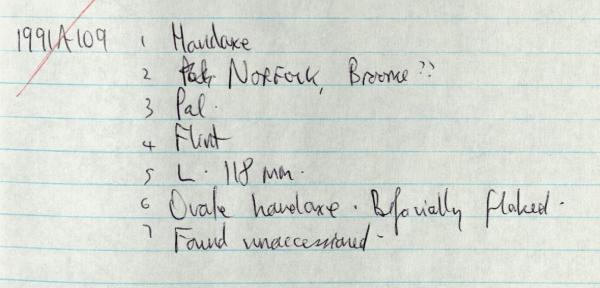 1991A109 1 Handaxe
2 NORFOLK, Broome??
3 Pal.
4 Flint
5 L. 118 mm.
6 Ovate handaxe. Bifacially flaked.
7 Found unaccessioned-